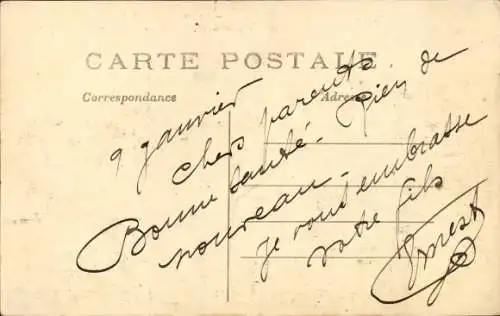 CARTE POSTALE
Correspondance
Adresse
9 janvier
Chers parents
Bonne santé. Rien de
nouveau.
Je vous embrasse
votre fils
Ernest